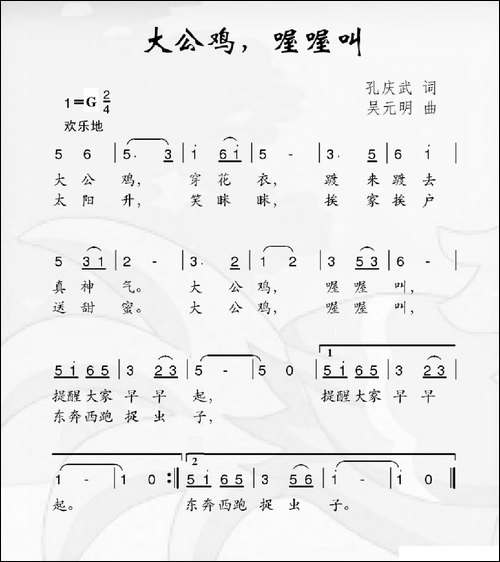 大公鸡，喔喔叫
孔庆武 词
1=G 2/4
吴元明 曲
欢乐地
5 6 | 5. 3 | 1 6 i | 5 - | 3. 5 | 6 i |
大公鸡，穿花衣，踱来踱去
太阳升，笑眯眯，挨家挨户
5 3 1 | 2 - | 3. 2 | 1 2 | 3 5 3 | 6 - |
真神气。大公鸡，喔喔叫，
送甜蜜。大公鸡，喔喔叫，
5 i 6 5 | 3 2 3 | 5 - | 5 0 | 1 5 i 6 5 | 3 2 3 |
提醒大家早早起，提醒大家早早
东奔西跑捉虫子，
i - | i 0 :| 2 5 i 6 5 | 3 5 6 | i - | i 0 |
起。东奔西跑捉虫子。